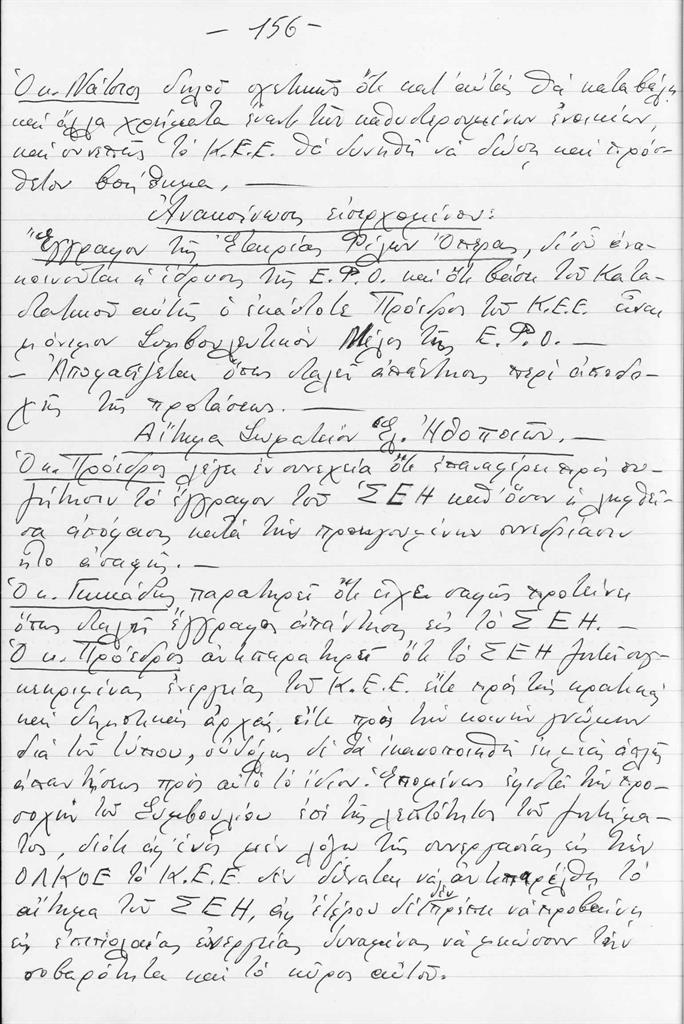 - 156 -
Ὁ κ. Νάτσιος δηλοῖ σχετικῶς ὅτι κατ' αὐτάς θά καταβάλῃ
καί ἄλλα χρήματα ἔναντι τῶν καθυστερουμένων ἐνοικίων,
καί συνεπῶς τό Κ.Ε.Ε. θά δυνηθῇ νά δώσῃ καί πρόσ-
θετον βοήθημα. —
Ἀνακοίνωσις εἰσερχομένων:
Ἔγγραφον τῆς Ἑταιρίας Φίλων Ὄπερας, δι' οὗ ἀνα-
κοινοῦται ἡ ἵδρυσις τῆς Ε.Φ.Ο. καί ὅτι βάσει τοῦ Κατα-
στατικοῦ αὐτῆς ὁ ἑκάστοτε Πρόεδρος τοῦ Κ.Ε.Ε. εἶναι
μόνιμον Συμβουλευτικόν Μέλος τῆς Ε.Φ.Ο. —
- Ἀποφασίζεται ὅπως σταλῇ ἀπάντησις περί ἀποδο-
χῆς τῆς προτάσεως. —
Αἴτημα Σωματείου Ἑλ. Ἠθοποιῶν. —
Ὁ κ. Πρόεδρος λέγει ἐν συνεχείᾳ ὅτι ἐπαναφέρει πρός συ-
ζήτησιν τό ἔγγραφον τοῦ ΣΕΗ καθ' ὅσον ἡ ληφθεῖ-
σα ἀπόφασις κατά τήν προηγουμένην συνεδρίασιν
ἦτο ἀσαφής. —
Ὁ κ. παρατηρεῖ ὅτι εἶχε σαφῶς προτείνει
ὅπως σταλῇ ἔγγραφος ἀπάντησις εἰς τό ΣΕΗ. —
Ὁ κ. Πρόεδρος ἀντιπαρατηρεῖ ὅτι τό ΣΕΗ ζητεῖ συγ-
κεκριμένας ἐνεργείας τοῦ Κ.Ε.Ε. εἴτε πρός τάς κρατικάς
καί δημοτικάς ἀρχάς, εἴτε πρός τήν κοινήν γνώμην
διά τοῦ τύπου, οὐδόλως δέ θά ἱκανοποιηθῇ ἐκ μιᾶς ἁπλῆς
ἀπαντήσεως πρός αὐτό τό ἴδιον. Ἑπομένως ἐφιστᾷ τήν προ-
σοχήν τοῦ Συμβουλίου ἐπί τῆς λεπτότητος τοῦ ζητήμα-
τος, διότι ἀφ' ἑνός μέν λόγῳ τῆς συνεργασίας εἰς τήν
ΟΛΚΟΕ τό Κ.Ε.Ε. δέν δύναται νά ἀντιπαρέλθῃ τό
αἴτημα τοῦ ΣΕΗ, ἀφ' ἑτέρου δέ δέν πρέπει νά προβαίνῃ
εἰς ἐπιπολαίας ἐνεργείας δυναμένας νά μειώσουν τήν
σοβαρότητα καί τό κῦρος αὐτοῦ.